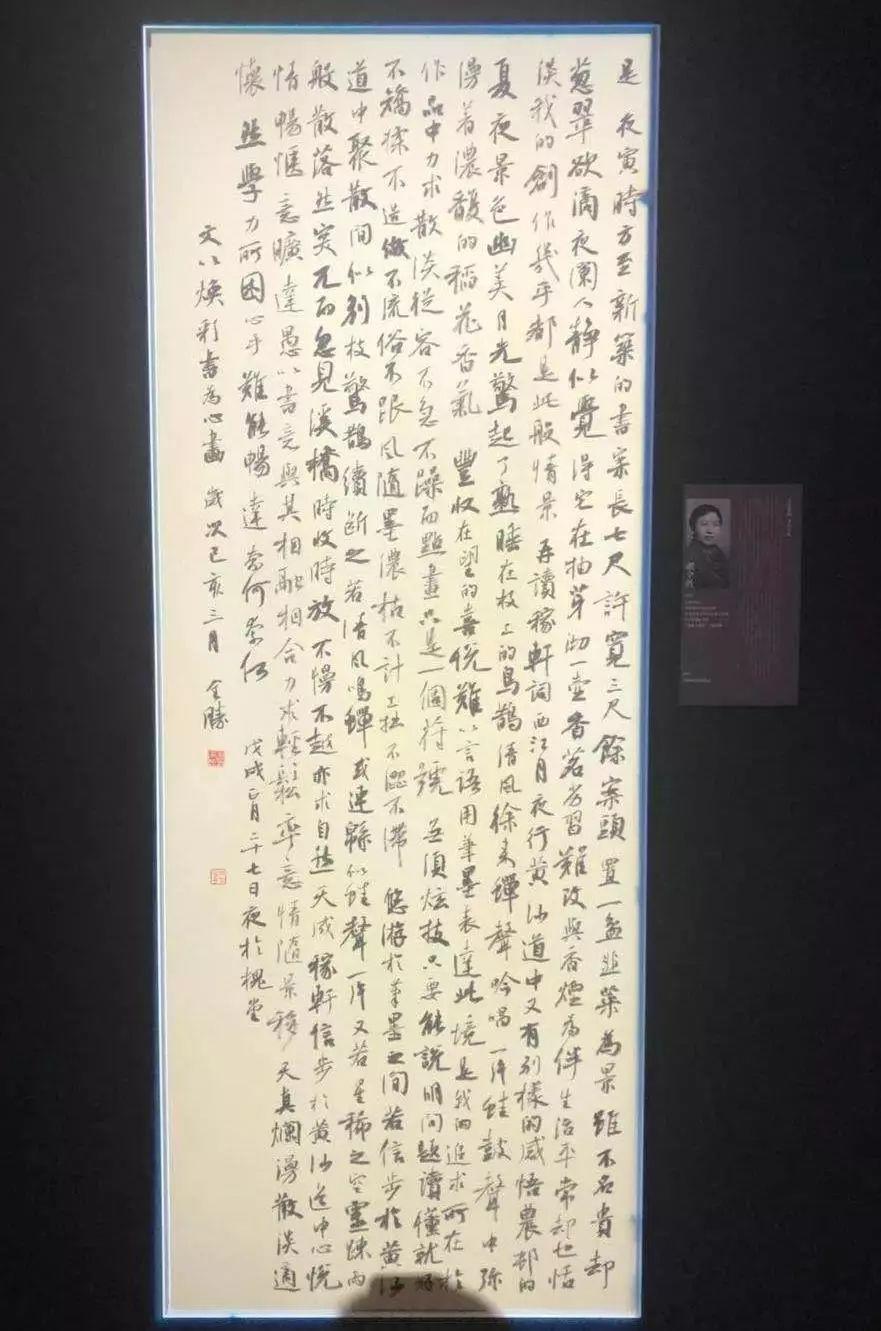 是夜寅時方至新築的書案長七尺許寬三尺餘案頭置一盆韭菜為景雖不名貴卻
蔥翠欲滴夜闌人靜似覺得它在抽芽沏一壺香茗劣習難改與香煙為伴生活平常卻也恬
淡我的創作幾乎都是此般情景再讀稼軒詞西江月夜行黃沙道中又有別樣的感悟農村的
夏夜景色幽美月光驚起了熟睡在枝上的鳥鵲清風徐來蟬聲吟唱一片蛙鼓聲中弥
漫着濃馥的稻花香氣豐收在望的喜悅難以言語用筆墨表達此境是我的追求所在於
作品中力求散淡從容不急不躁而點畫只是一個符號無須炫技只要能說明問題讀懂就好
不矯揉不造做不流俗不跟風隨墨濃枯不計工拙不澀不滯悠游於筆墨之間若信步於黃沙
道中聚散間似別枝驚鵲續斷之若清風鳴蟬或連緜似蛙聲一片又若星稀之空靈疎雨
般散落然突兀而忽見溪橋時收時放不慢不趕亦求自然天成稼軒信步於黃沙道中心悅
情暢愜意曠達愚以書竟與其相融相合力求輕鬆率意情隨景移天真爛湧散淡適
懷然學力所困心手難能暢達奈何奈何 戊戌正月二十七日夜於槐堂
文以煥彩書為心畫 歲次己亥三月 全勝